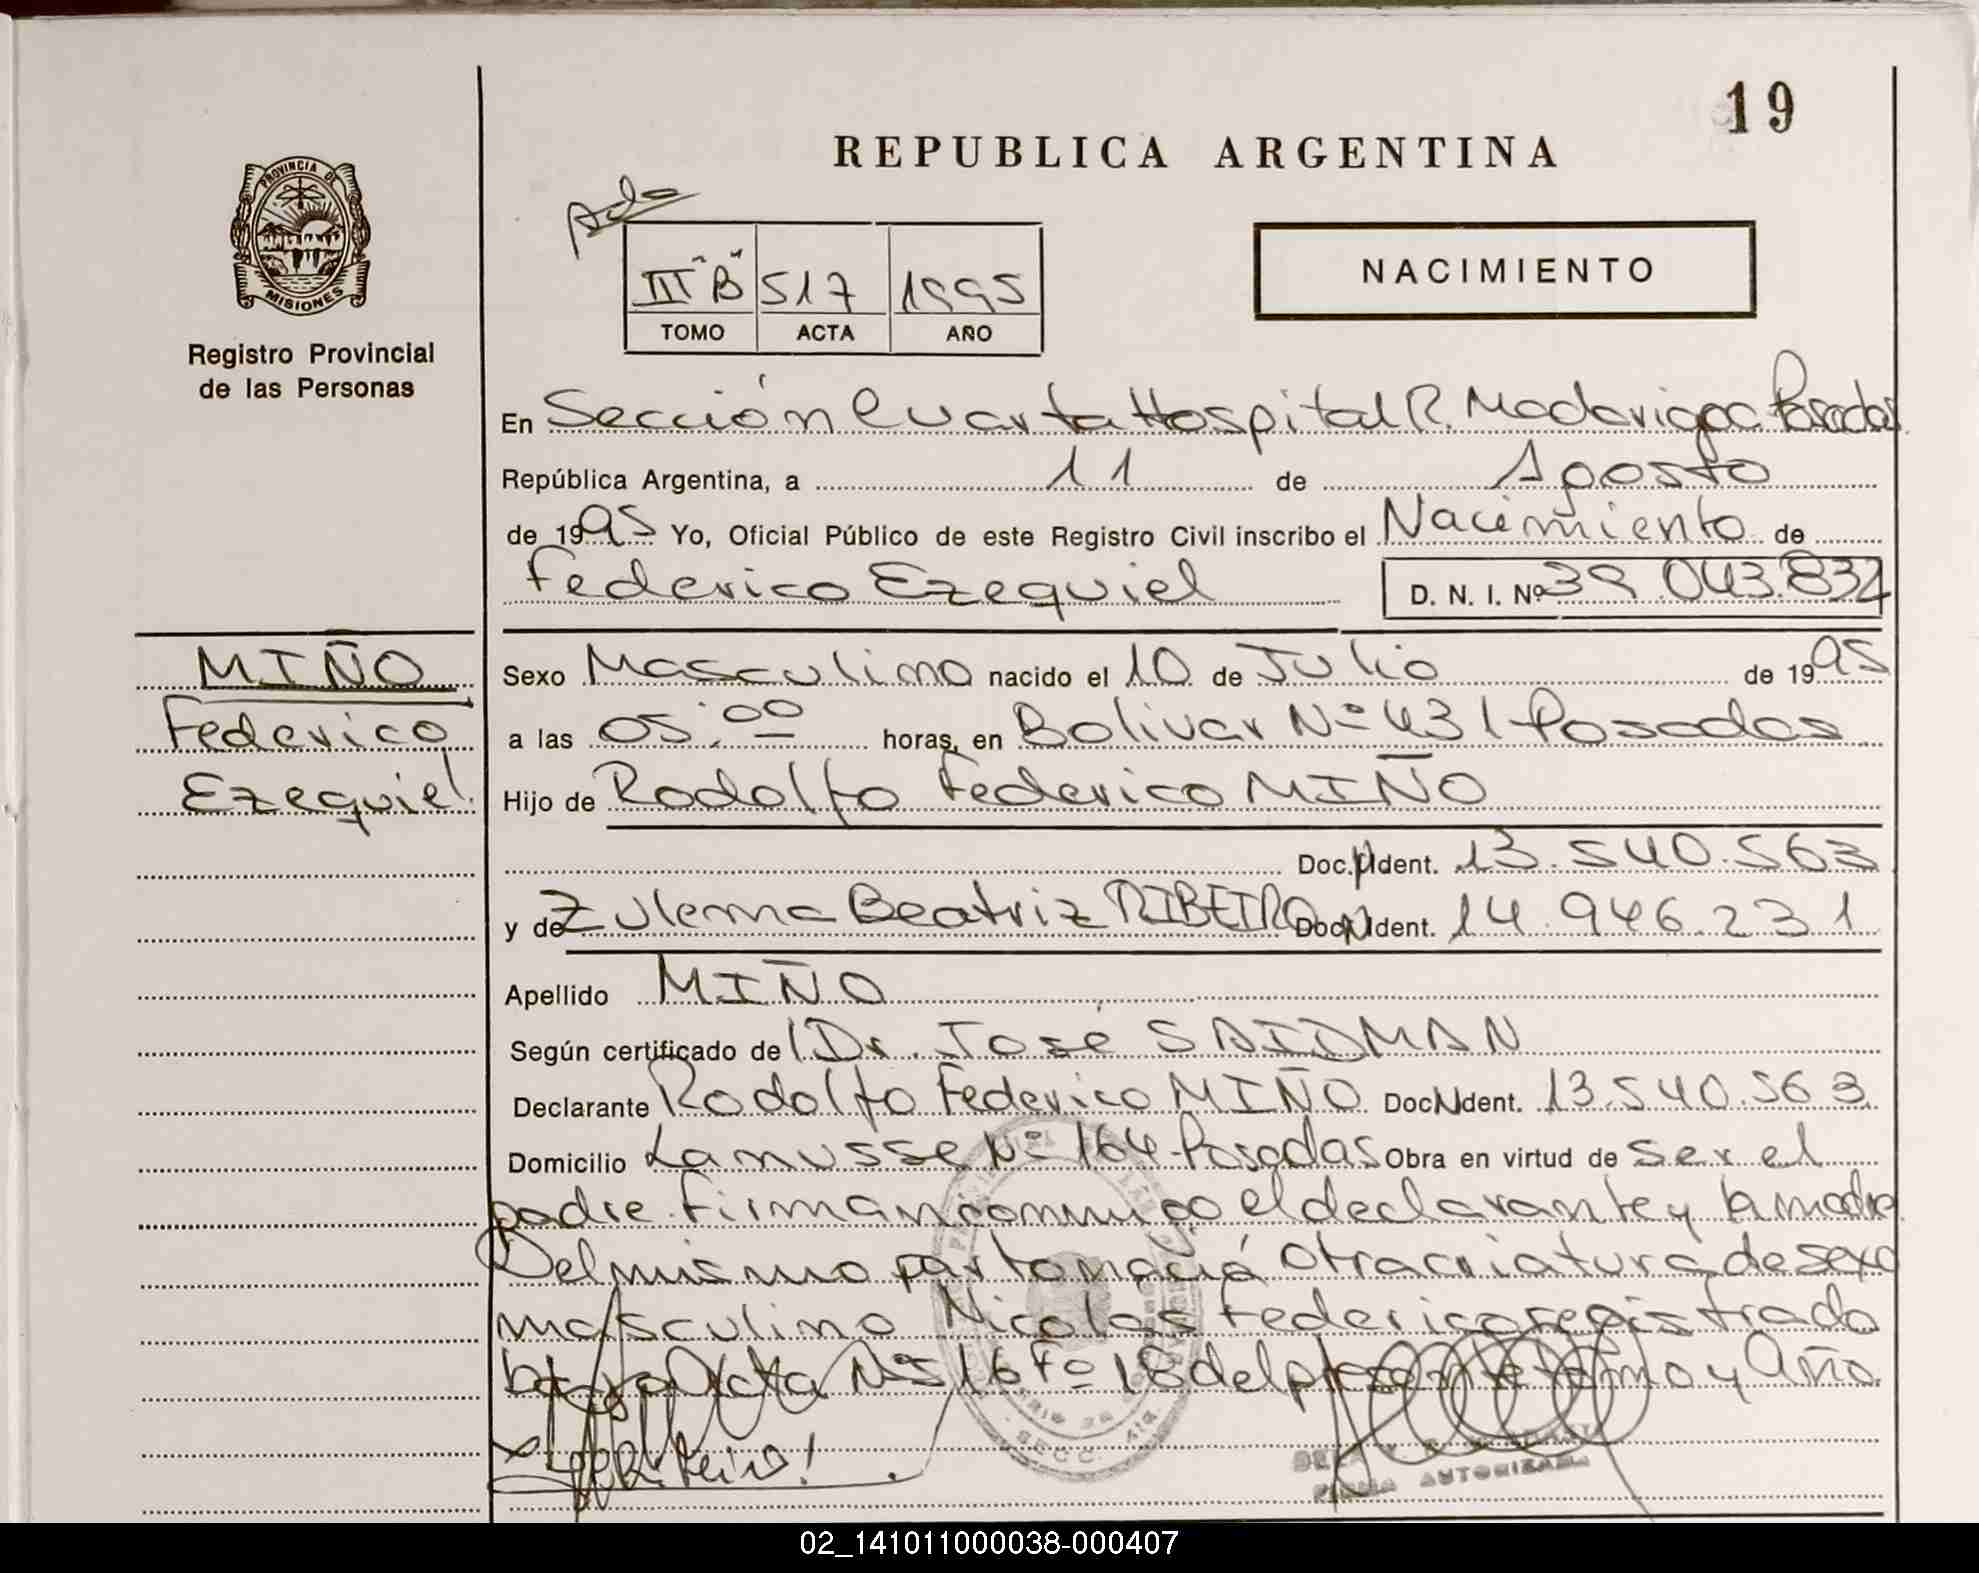 19
REPUBLICA ARGENTINA
PROVINCIA DE
MISIONES
Registro Provincial
de las Personas
III "B" 517 1995
TOMO ACTA AÑO
NACIMIENTO
En Sección Cuarta Hospital R. Madariaga Posadas
República Argentina, a 11 de Agosto
de 1995 Yo, Oficial Público de este Registro Civil inscribo el Nacimiento de
Federico Ezequiel D. N. I. Nº 39.043.832
MIÑO
Federico
Ezequiel
Sexo Masculino nacido el 10 de Julio de 1995
a las 05:00 horas, en Bolivar Nº 431 Posadas
Hijo de Rodolfo Federico MIÑO
Doc. Ident. 13.540.563
y de Zulema Beatriz RIBEIRO Doc. Ident. 14.946.231
Apellido MIÑO
Según certificado de Dr. José SAIDMAN
Declarante Rodolfo Federico MIÑO Doc N Ident. 13.540.563
Domicilio Lanusse Nº 164 Posadas Obra en virtud de ser el
padre. Firman conmigo el declarante y la madre
Del mismo parto nació otra criatura de sexo
masculino Nicolas Federico registrado
bajo Acta Nº 516 Fº 18 del presente tomo y Año.
FIRMA AUTORIZADA
02_141011000038-000407